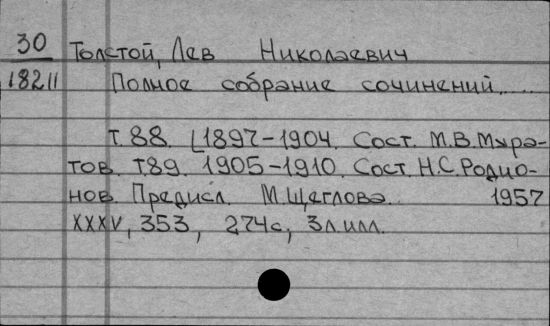 30 Толстой, Лев Николаевич
18211 Полное собрание сочинений.....
т. 88. [1897-1904. Сост. М.В. Мура-
тов. т. 89. 1905-1910. Сост. Н.С. Родио-
нов. Предисл. М. Щеглова. 1957
XXXV, 353, 274с, 3л.илл.